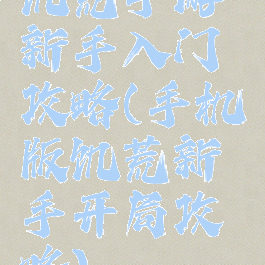 饥荒手游
新手入门
攻略(手机
版饥荒新
手开局攻
略)